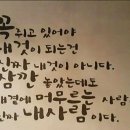 꼭 쥐고 있어야
내것이 되는건
진짜 내것이 아니다.
잠깐 놓았는데도
내곁에 머무르는 사람이
진짜 내사람이다.